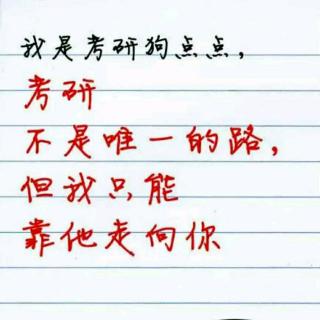 我是考研狗点点，
考研
不是唯一的路，
但我只能
靠他走向你